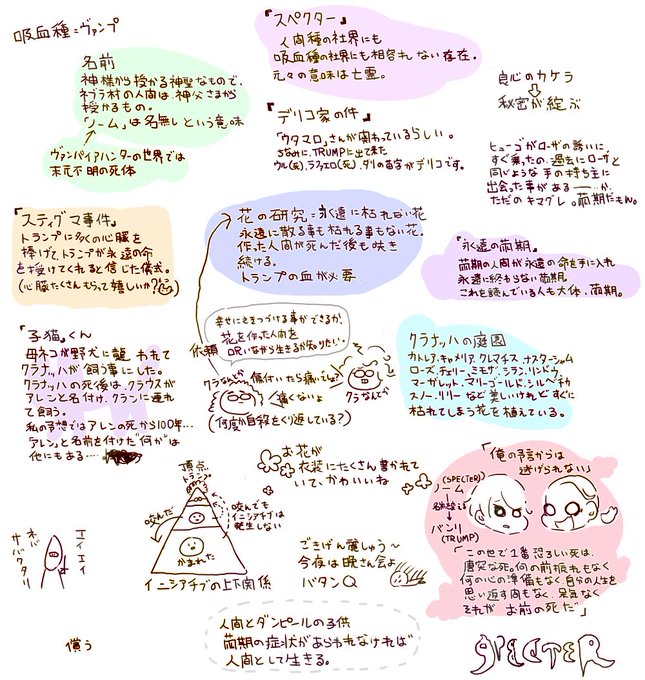 吸血種=ヴァンプ
名前
神様から授かる神聖なもので、
ネブラ村の人間は、神父さまから
授かるもの。
「ノーム」は名無しという意味
ヴァンパイアハンターの世界では
身元不明の死体
『スペクター』
人間種の社界にも
吸血種の社界にも相容れない存在。
元々の意味は亡霊。
『デリコ家の件』
「ウタマロ」さんが関わっているらしい。
ちなみに、TRUMPに出て来た
ウル(死)、ラファエロ(死)、ダリの苗字がデリコです。
良心のカケラ
秘密が綻ぶ
ヒューゴがローザの誘いに、
すぐ乗ったの、過去にローザと
同じような手の持ち主に
出会った事がある――が、
ただのキマグレ。繭期だもん。
『スティグマ事件』
トランプに多くの心臓を
捧げて、トランプが永遠の命
を授けてくれると信じた儀式。
(心臓たくさんもらって嬉しいか?)
花の研究=永遠に枯れない花
永遠に散る事も枯れる事もない花。
作った人間が死んだ後も咲き
続ける。
トランプの血が必要
『永遠の繭期』
繭期の人間が永遠の命を手に入れ
永遠に終わらない繭期。
これを読んでいる人も大体、繭期。
依頼
幸せにさきつづける事ができるか、
花を作った人間を
呪いながら生きるか知りたい。
『子猫』くん
母ネコが野犬に襲われて
クラナッハが飼う事にした。
クラナッハの死後は、クラウスが
アレンと名付け、クランに連れ
て飼う。
私の予想ではアレンの死から100年…
アレンと名前を付けた"何か"は
他にもある…
クラなんとか
傷付いたら痛いでしょ?
痛くないよ
クラなんで
(何度か自殺をくり返している?)
クラナッハの庭園
カトレア、キャメリア、クレマチス、ナスターシャム
ローズ、チェリー、ミモザ、シラン、リンドウ、
マーガレット、マリーゴールド、シルベチカ
スノー、リリーなど美しいけれどすぐに
枯れてしまう花を植えている。
頂点
トランプ
咬んだ
咬んでも
イニシアチブは
発生しない
かまれた
イニシアチブの上下関係
お花が
衣装にたくさん書かれて
いて、かわいいね
ごきげん麗しゅう~
今夜は晩さん会よ
バタンQ
「俺の予言からは
逃げられない」
(SPECTER)
ノーム
名前変える
バンリ
(TRUMP)
「この世で1番恐ろしい死は、
唐突な死。何の前振れもなく
何の心の準備もなく、自分の人生を
思い返す間もなく、呆気なく
それが お前の死だ」
エイエイ
ネバ
サバクタリ
償う
人間とダンピールの子供
繭期の症状があらわれなければ
人間として生きる。
SPECTER